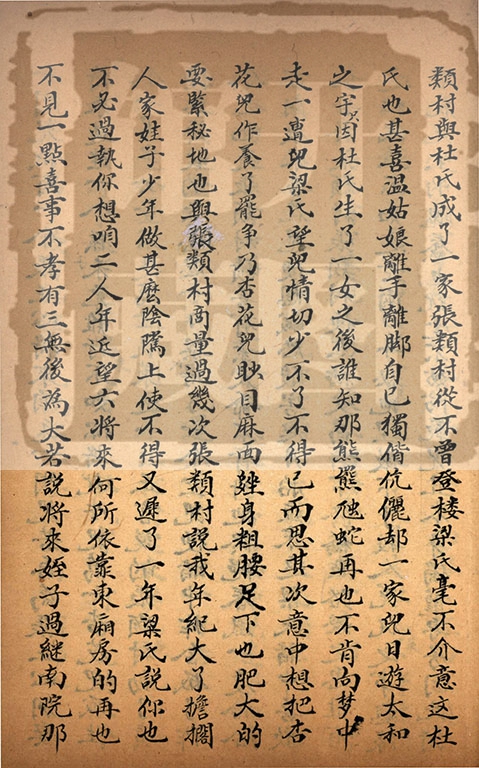 類村與杜氏成了一家張類村從不曾登楼梁氏毫不介意这杜
氏也甚喜温姑娘離手離脚自己獨偕伉儷却一家兒日遊太和
之宇因杜氏生了一女之後誰知那熊羆虺蛇再也不肯向梦中
走一遭兒梁氏望兒情切少不了不得已而思其次意中想把杏
花兒作養了罷争乃杏花兒眇目麻面矬身粗腰足下也肥大的
要緊秘地也與張類村商量過幾次張類村說我年紀大了擔擱
人家娃子少年做甚麽陰隲上使不得又遲了一年梁氏說你也
不必過執你想咱二人年近望六将來何所依靠東廂房的再也
不見一點喜事不孝有三無後為大若說将來姪子過継南院那